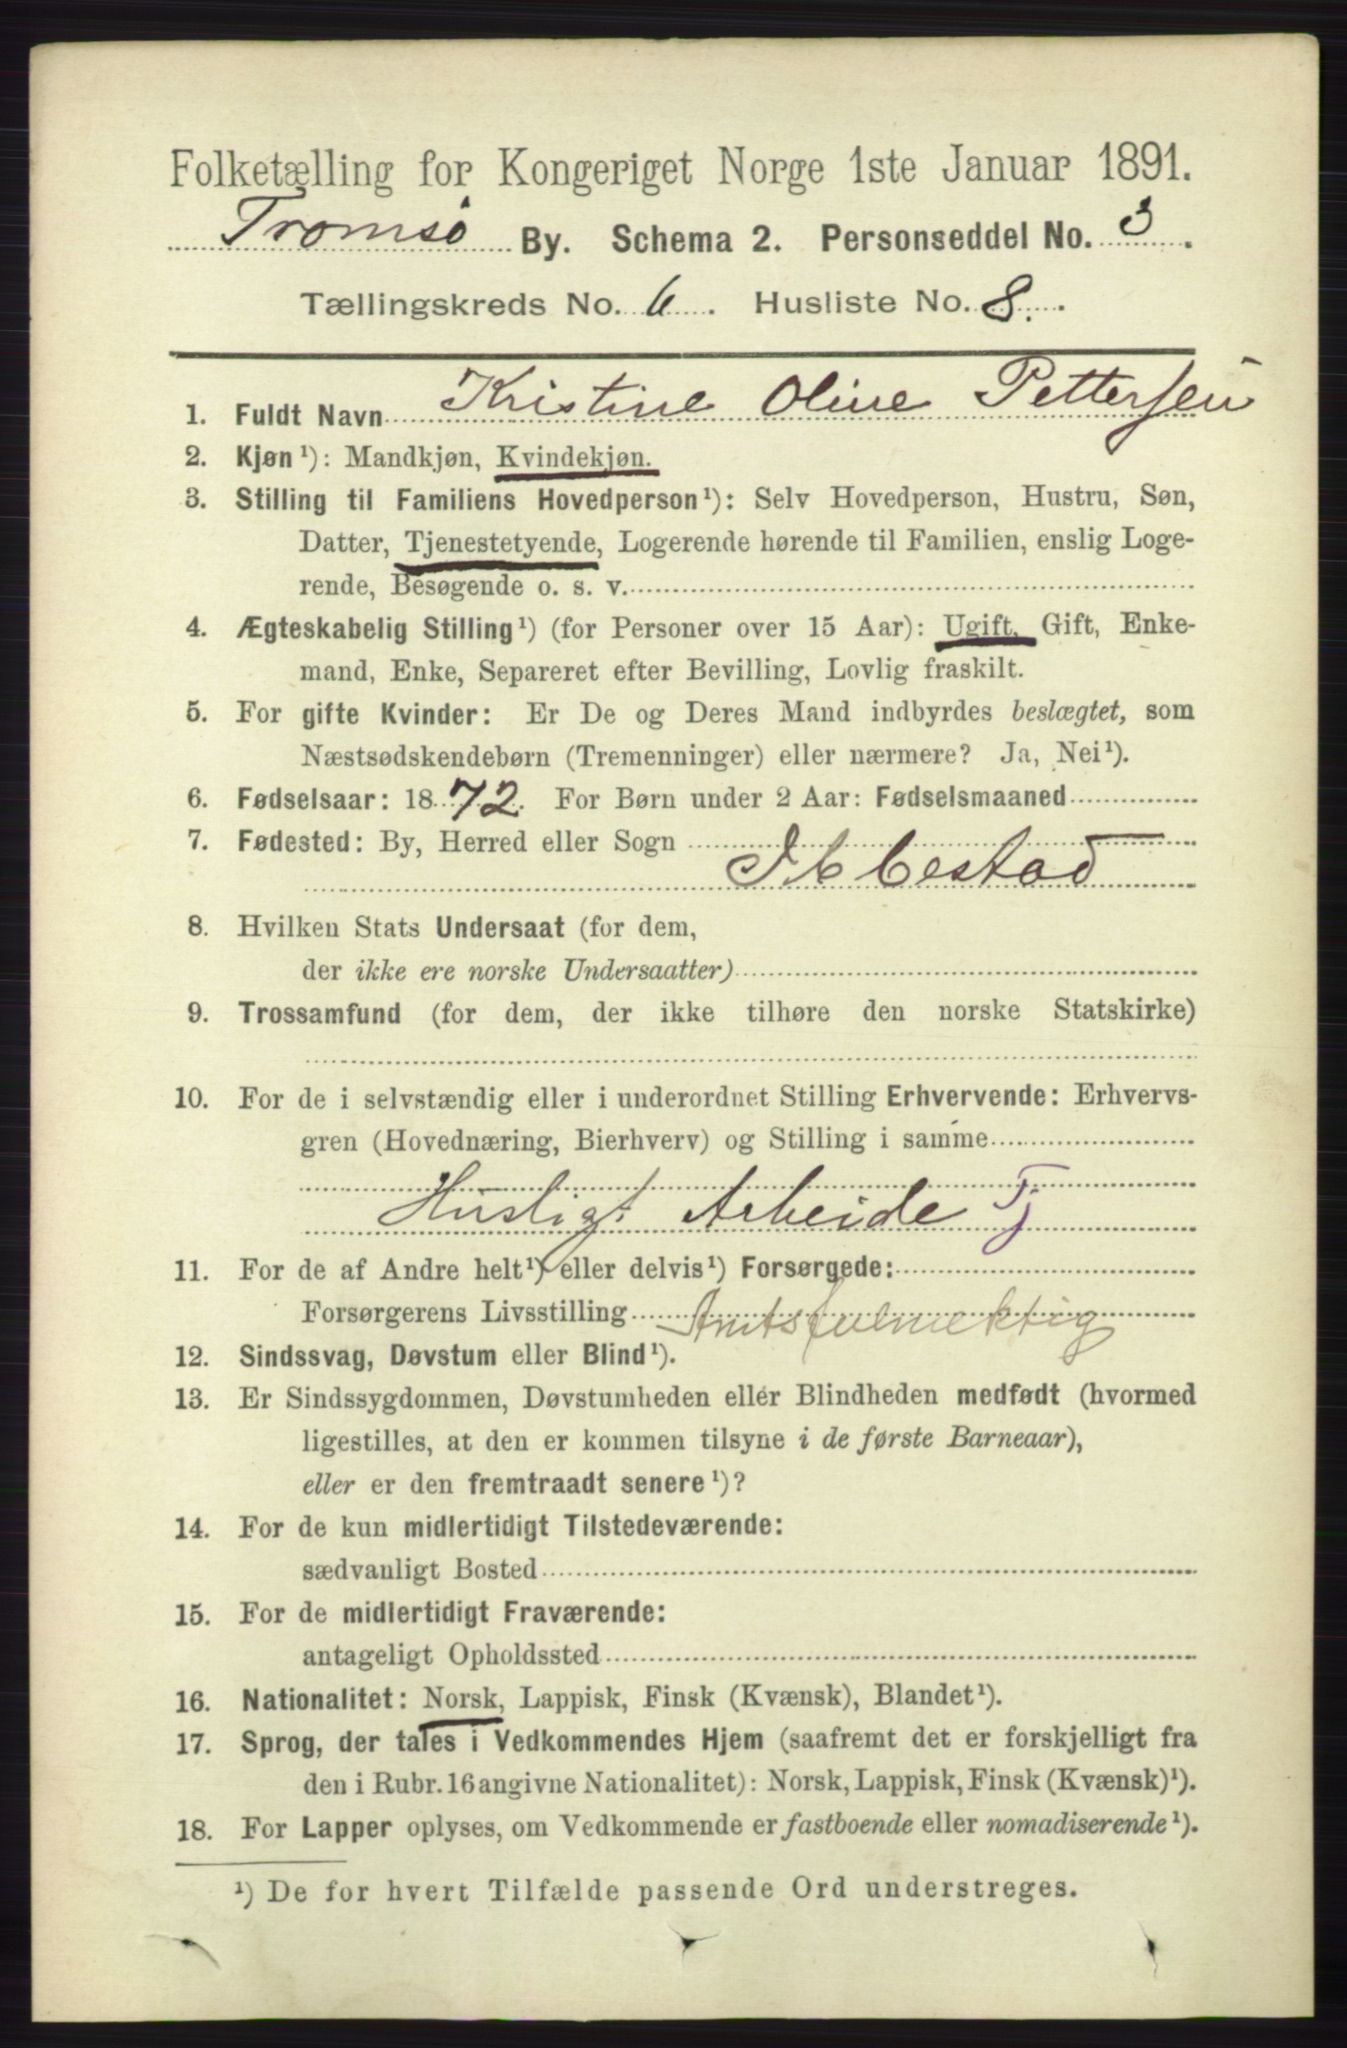 Folketælling for Kongeriget Norge 1ste Januar 1891.
Tromsø By. Schema 2. Personseddel No. 3.
Tællingskreds No. 6. Husliste No. 8.
1. Fuldt Navn Kristine Oline Pettersen
2. Kjøn¹): Mandkjøn, Kvindekjøn.
3. Stilling til Familiens Hovedperson¹): Selv Hovedperson, Hustru, Søn,
Datter, Tjenestetyende, Logerende hørende til Familien, enslig Loge-
rende, Besøgende o. s. v.
4. Ægteskabelig Stilling¹) (for Personer over 15 Aar): Ugift, Gift, Enke-
mand, Enke, Separeret efter Bevilling, Lovlig fraskilt.
5. For gifte Kvinder: Er De og Deres Mand indbyrdes beslægtet, som
Næstsødskendebørn (Tremenninger) eller nærmere? Ja, Nei¹).
6. Fødselsaar: 1872. For Børn under 2 Aar: Fødselsmaaned
7. Fødested: By, Herred eller Sogn
Ibbestad
8. Hvilken Stats Undersaat (for dem,
der ikke ere norske Undersaatter)
9. Trossamfund (for dem, der ikke tilhøre den norske Statskirke)
10. For de i selvstændig eller i underordnet Stilling Erhvervende: Erhvervs-
gren (Hovednæring, Bierhverv) og Stilling i samme
Husligt Arbeide Tj
11. For de af Andre helt¹) eller delvis¹) Forsørgede:
Forsørgerens Livsstilling Amtsfulmektig
12. Sindssvag, Døvstum eller Blind¹).
13. Er Sindssygdommen, Døvstumheden eller Blindheden medfødt (hvormed
ligestilles, at den er kommen tilsyne i de første Barneaar),
eller er den fremtraadt senere¹)?
14. For de kun midlertidigt Tilstedeværende:
sædvanligt Bosted
15. For de midlertidigt Fraværende:
antageligt Opholdssted
16. Nationalitet: Norsk, Lappisk, Finsk (Kvænsk), Blandet¹).
17. Sprog, der tales i Vedkommendes Hjem (saafremt det er forskjelligt fra
den i Rubr. 16 angivne Nationalitet): Norsk, Lappisk, Finsk (Kvænsk)¹).
18. For Lapper oplyses, om Vedkommende er fastboende eller nomadiserende¹).
¹) De for hvert Tilfælde passende Ord understreges.